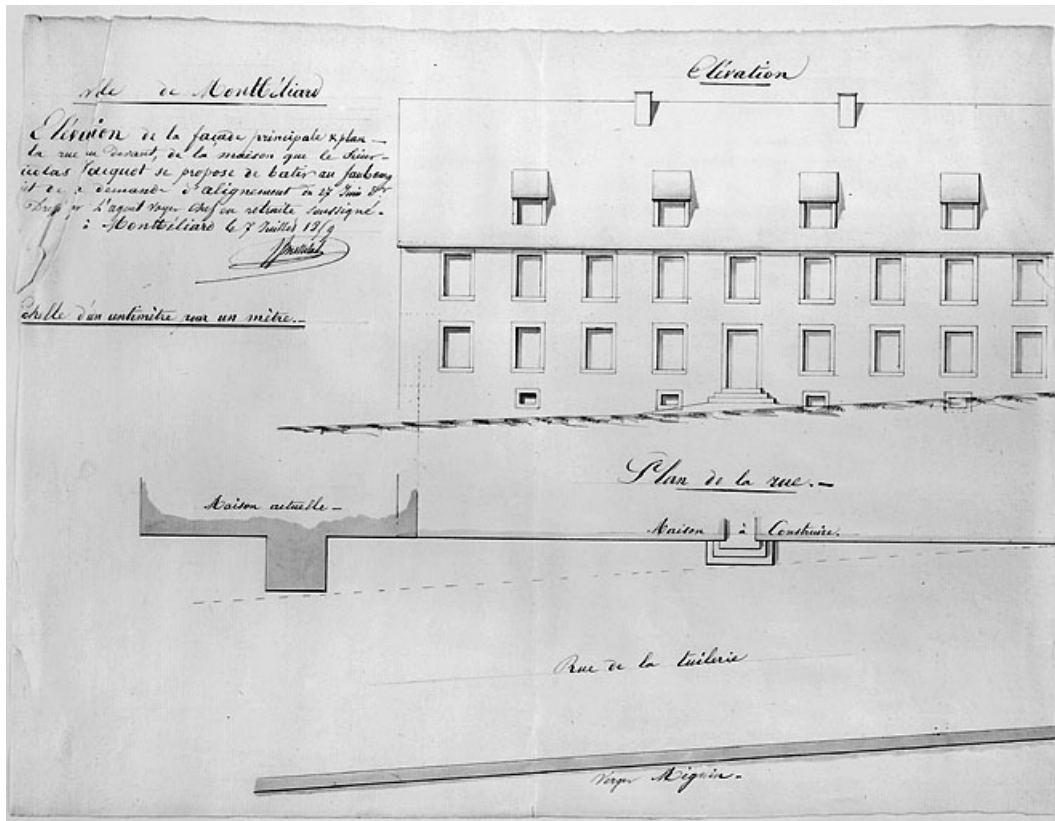 Ville de Montbéliard
Elévation de la façade principale & plan
la rue au devant, de la maison que le Sieur
icolas Jacquot se propose de batir au faubourg
et de demande d'alignement du 27 Juin
Dressé par L'agent voyer chef en retraite soussigné.
à Montbéliard le 7 Juillet
Echelle d'un centimètre pour un mètre.
Elévation
Plan de la rue.
Maison actuelle
Maison à Construire.
Rue de la tuilerie
Verger Mignin.